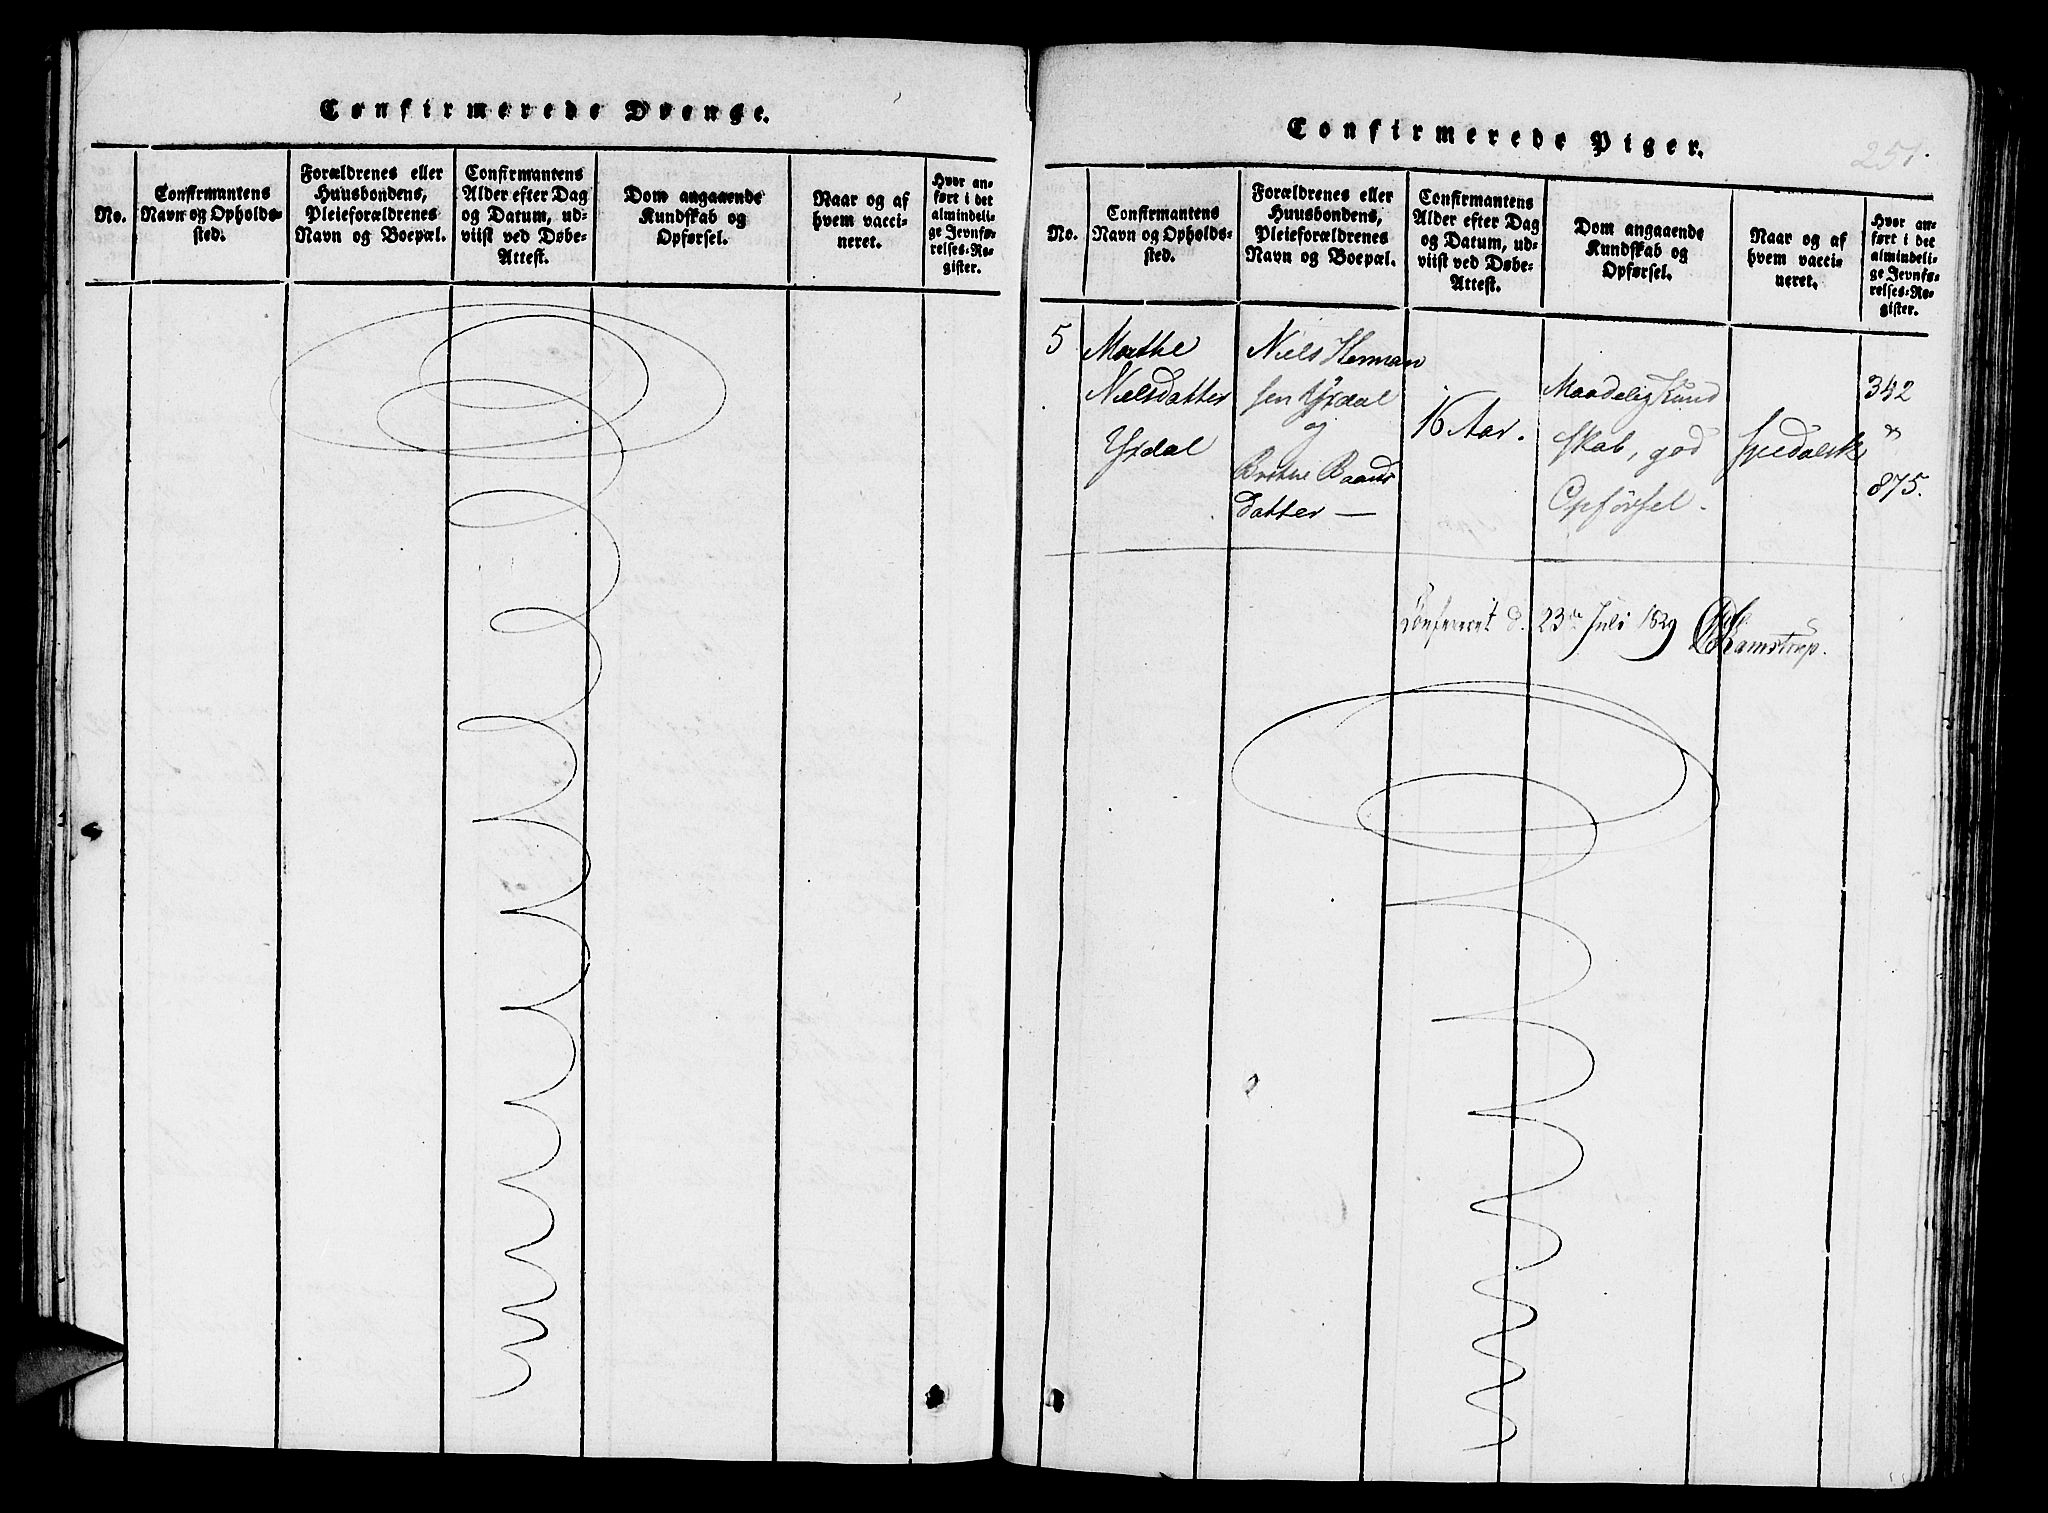 Confirmerede Drenge.
No.
Confirmantens
Navn og Opholds-
sted.
Forældrenes eller
Huusbondens,
Pleieforældrenes
Navn og Boepæl.
Confirmantens
Alder efter Dag
og Datum, ud-
viist ved Døbe-
Attest.
Dom angaaende
Kundskab og
Opførsel.
Naar og af
hvem vacci-
neret.
Hvor an-
ført i det
almindeli-
ge Jevnfø-
relses-Re-
gister.
Confirmerede Piger.
251.
No.
Confirmantens
Navn og Opholds-
sted.
Forældrenes eller
Huusbondens,
Pleieforældrenes
Navn og Boepæl.
Confirmantens
Alder efter Dag
og Datum, ud-
viist ved Døbe-
Attest.
Dom angaaende
Kundskab og
Opførsel.
Naar og af
hvem vacci-
neret.
Hvor an-
ført i det
almindeli-
ge Jevnfø-
relses-Re-
gister.
5
Marthe
Nielsdatter
Yxdal
Niels Herman
sen Yxdal
og
Brithe Baards
datter —
16 Aar.
Maadelig Kund
skab, god
Opførsel.
spedalsk
342
"
875.
Confereret d. 23de Juli 1829
Ramstrup.